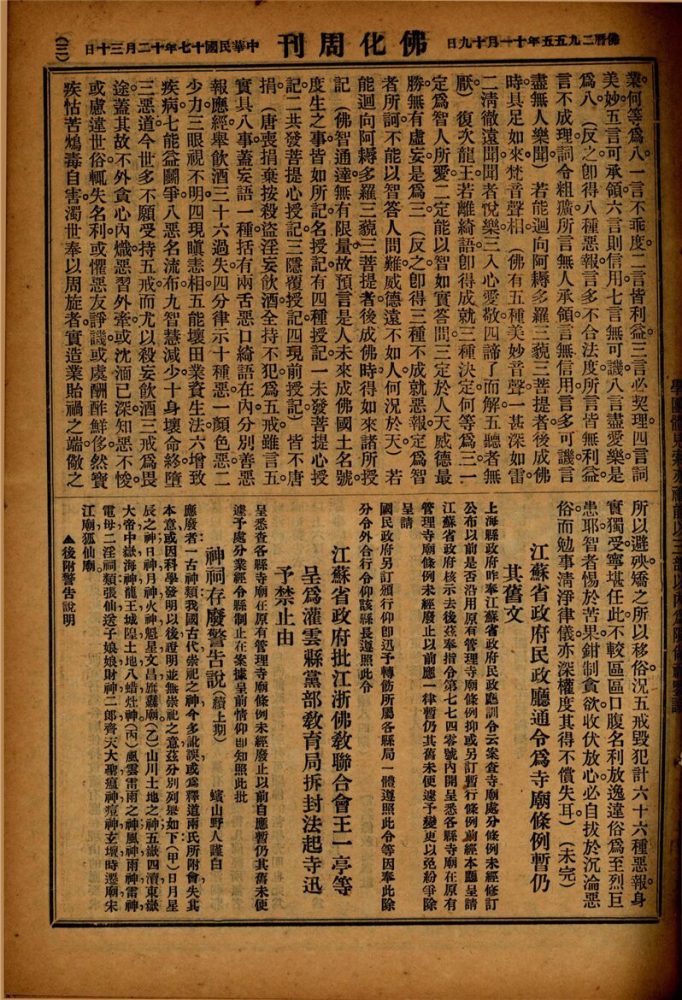 佛曆二九五五年十一月十九日
佛化周刊
中華民國十七年十二月三十日
(三)
業何等爲八一言不乖度二言皆利益三言必契理四言詞
美妙五言可承領六言則信用七言無可譏八言盡愛樂是
爲八(反之卽得八種惡報言多不合法度所言皆無利益
言不成理詞令粗獷所言無人承領言無信用言多可譏言
盡無人樂聞)若能迴向阿耨多羅三藐三菩提者後成佛
時具足如來梵音聲相(佛有五種美妙音聲一甚深如雷
二淸徹遠聞聞者悅樂三入心愛敬四諦了而解五聽者無
厭)復次龍王若離綺語卽得成就三種決定何等爲三一
定爲智人所愛二定能以智如實答問三定於人天威德最
勝無有虛妄是爲三(反之卽得三種不成就惡報定爲智
者所訶不能以智答人問難威德遠不如人何況於天)若
能迴向阿耨多羅三藐三菩提者後成佛時得如來諸所授
記(佛智通達無有限量故預言是人未來成佛國土名號
度生之事皆如所記名授記有四種授記一未發菩提心授
記二共發菩提心授記三隱覆授記四現前授記)皆不唐
捐(唐喪捐棄按殺盜淫妄飲酒全持不犯爲五戒雖言五
實具八事蓋妄語一種括有兩舌惡口綺語在內分別善惡
報應經舉飲酒三十六過失四分律示十種惡一顏色惡二
少力三眼視不明四現瞋恚相五能壞田業資生法六增致
疾病七能益鬭爭八惡名流布九智慧減少十身壞命終墮
三惡道今世多不願受持五戒而尤以殺妄飲酒三戒爲畏
途蓋其故不外貪心內熾惡習外牽或沈湎已深知惡不悛
或慮違世俗輒失名利或懼惡友諍譏或虞酬酢鮮侈然寶
疾怙苦鴆毒自害濁世奉以周旋者實造業貽禍之端儆之
所以避殃矯之所以移俗況五戒毀犯計六十六種惡報身
實獨受寧堪任此不較區區口腹名利放逸違俗爲至烈巨
患耶智者惕於苦果鉗制貪欲收伏放心必自拔於沉淪惡
俗而勉事淸淨律儀亦深權度其得不償失耳)(未完)
江蘇省政府民政廳通令爲寺廟條例暫仍
其舊文
上海縣政府昨奉江蘇省政府民政廳訓令云案查寺廟處分條例未經修訂
公布以前是否沿用原有管理寺廟條例抑或另訂暫行條例前經本廳呈請
江蘇省政府核示去後茲奉指令第七七四零號內開呈悉各縣寺廟在原有
管理寺廟條例未經廢止以前應一律暫仍其舊未便遽予變更以免紛爭除
呈請
國民政府另訂頒行仰卽迅予轉飭所屬各縣局一體遵照此令等因奉此除
分令外合行令仰該縣長遵照此令
江蘇省政府批江浙佛敎聯合會王一亭等
呈爲灌雲縣黨部敎育局拆封法起寺迅
予禁止由
呈悉查各縣寺廟在原有管理寺廟條例未經廢止以前自應暫仍其舊未便
遽予處分業經令縣制止在案據呈前情仰卽知照此批
神祠存廢警告說(續上期)
蠙山野人謹白
應廢者一古神類我國古代崇祀之神今多訛誤或爲釋道兩氏所附會失其
本意或因科學發明以後證明並無崇祀之意茲分別列舉如下(甲)日月星
辰之神日神月神火神魁星文昌旗纛廟(乙)山川土地之神五嶽四瀆東嶽
大帝中嶽海神龍王城隍土地八蜡灶神(丙)風雲雷雨之神風神雨神雷神
電母二淫祠類張仙送子娘娘財神二郞齊天大聖瘟神痘神玄壇時遷廟宋
江廟狐仙廟
▲後附警告說明